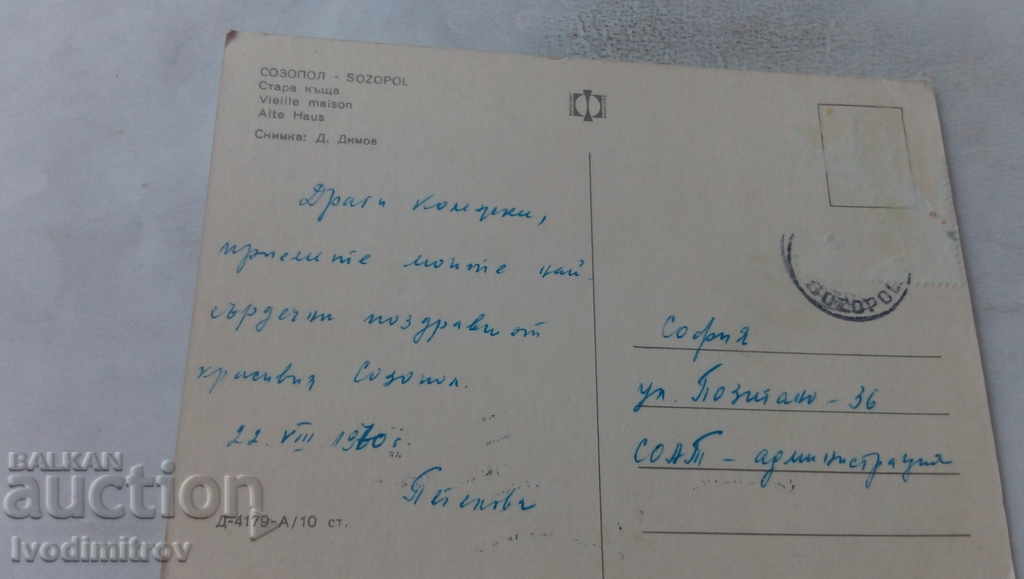 СОЗОПОЛ - SOZOPOL
Стара къща
Vieille maison
Alte Haus
Снимка: Д. Димов
Драги колежки,
приемете моите най-
сърдечни поздрави от
красивия Созопол.
22. VIII 1970 г.
SOZOPOL
София
ул. Позитано - 36
СОАТ - администрация
Д-4179-А/10 ст.
BALKAN
auction
Ivodimitrov